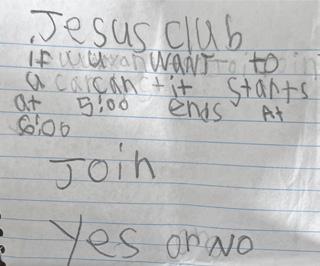 Jesus club
if WANT to
can it starts
at 5:00 ends At
6:00
Join
Yes or No